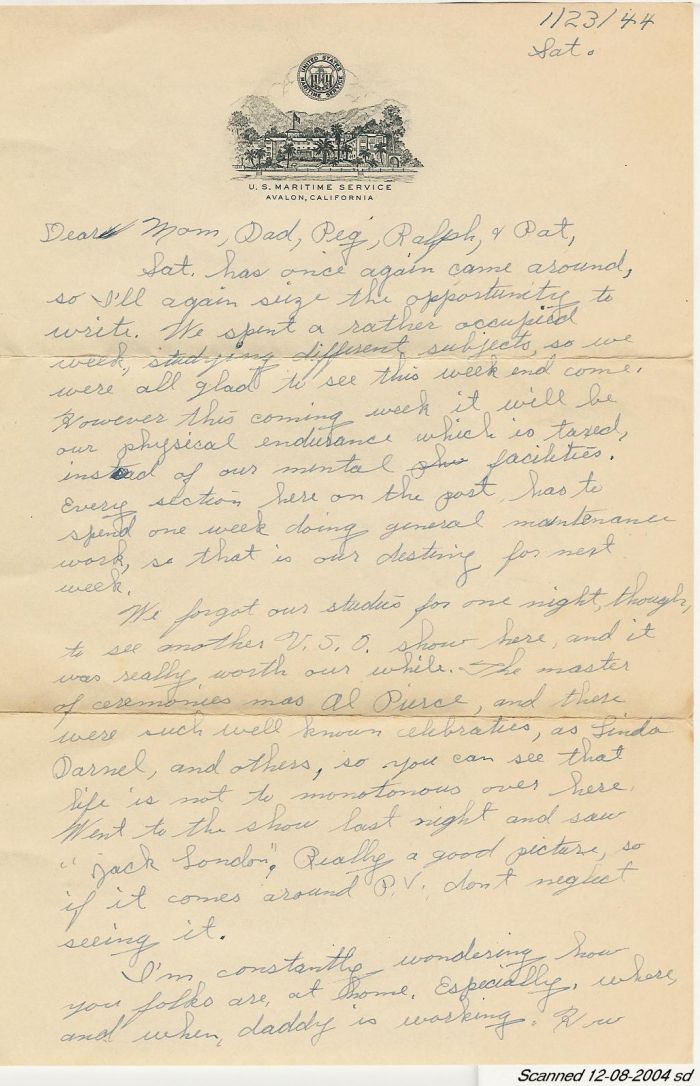 1/23/44
Sat.
UNITED STATES
MARITIME SERVICE
U.S. MARITIME SERVICE
AVALON, CALIFORNIA
Dear Mom, Dad, Peg, Ralph, & Pat,
Sat. has once again came around,
so I'll again seize the opportunity to
write. We spent a rather occupied
week, studying different subjects, so we
were all glad to see this week end come.
However this coming week it will be
our physical endurance which is taxed,
instead of our mental facilities.
Every section here on the post, has to
spend one week doing general maintenance
work, so that is our destiny for next
week.
We forgot our studies for one night, though,
to see another U.S.O. show here, and it
was really worth our while. The master
of ceremonies was Al Pierce, and there
were such well known celebraties, as Linda
Darnel, and others, so you can see that
life is not to monotonous over here.
Went to the show last night and saw
"Jack London", Really a good picture, so
if it comes around P.V. don't neglect
seeing it.
I'm constantly wondering how
you folks are, at home. Especially, where,
and when, daddy is working. How
Scanned 12-08-2004 sd